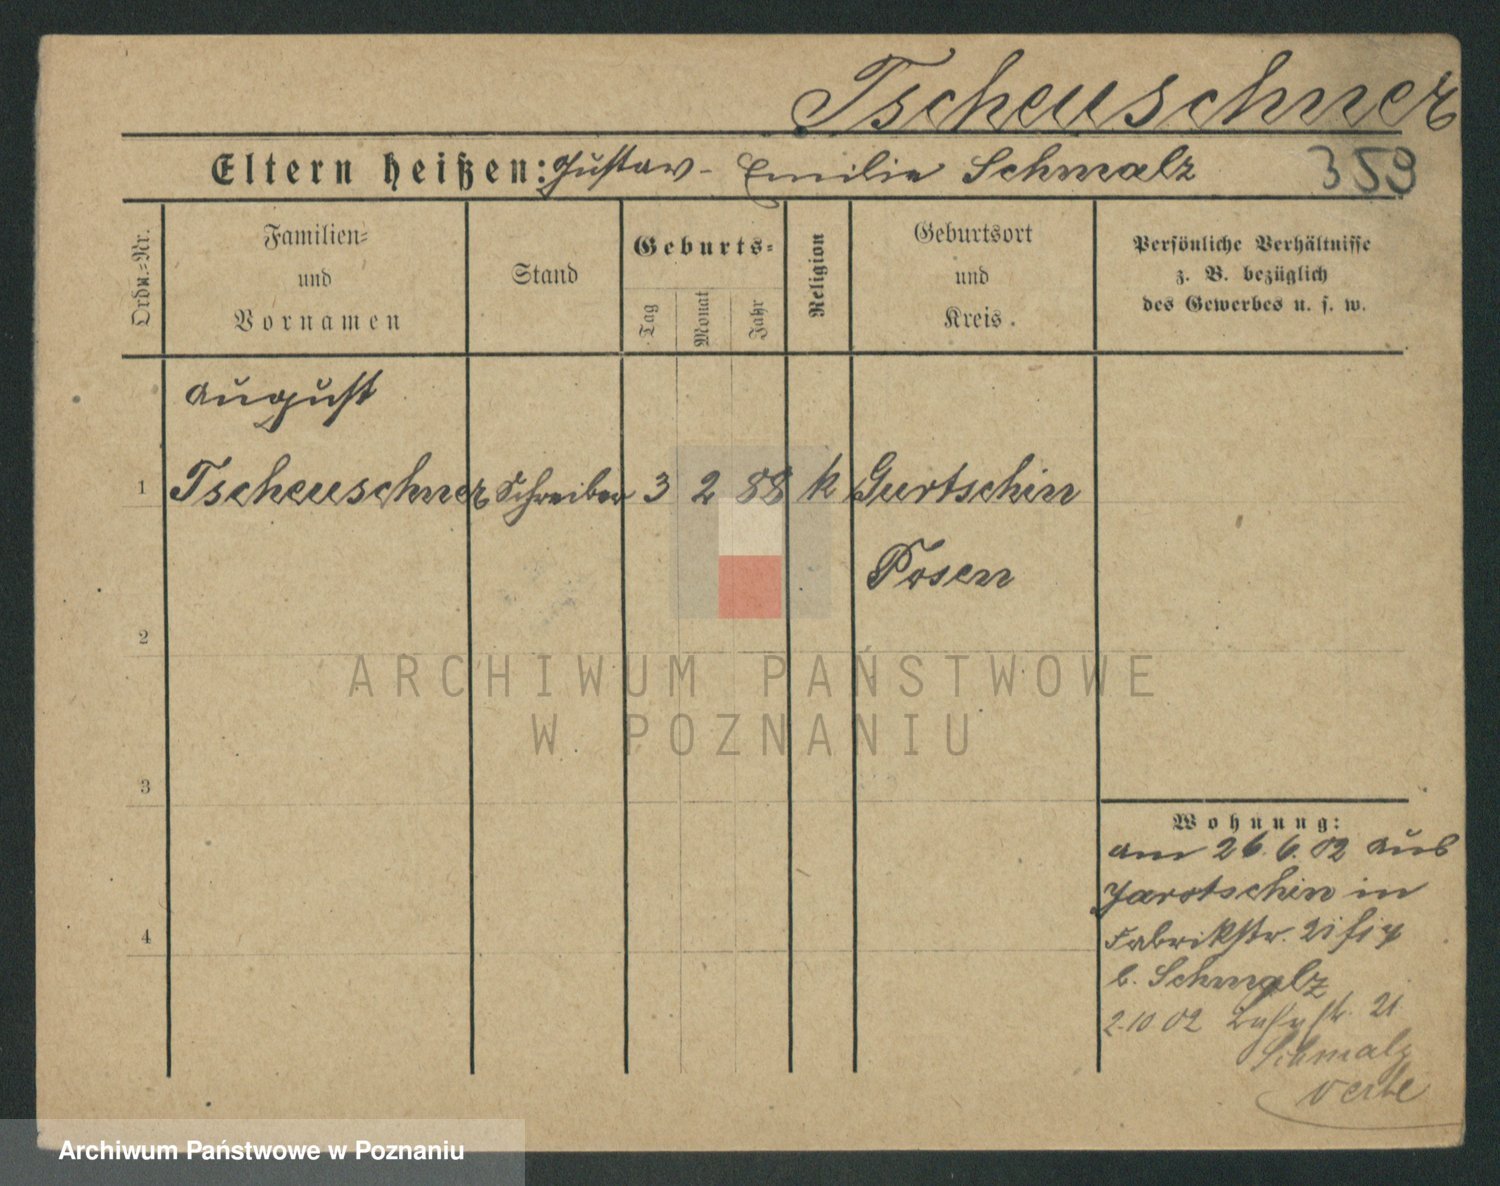 Tscheuschner
Eltern heißen: Gustav - Emilie Schmalz
359
Ordn.=Nr.
Familien=
und
Vornamen
Stand
Geburts=
Tag
Monat
Jahr
Religion
Geburtsort
und
Kreis.
Persönliche Verhältnisse
z. B. bezüglich
des Gewerbes u. s. w.
August
1 Tscheuschner Schreiber 3 2 88 k Gurtschin
Posen
2
3
4
ARCHIWUM PAŃSTWOWE
W POZNANIU
Wohnung:
am 26.6.02 aus
Jarotschin in
Fabrikstr.
b. Schmalz
2.10 02 21
Schmalz
Archiwum Państwowe w Poznaniu